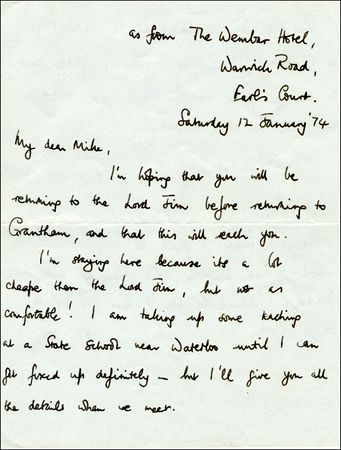 as from The Wembar Hotel,
Warwick Road,
Earl's Court.
Saturday 12 January '74
My dear Mike,
I'm hoping that you will be
returning to the Lord Jim before returning to
Grantham, and that this will reach you.
I'm staying here because its a lot
cheaper than the Lord Jim, but not as
comfortable! I am taking up some teaching
at a State School near Waterloo until I can
get fixed up definitely - but I'll give you all
the details when we meet.